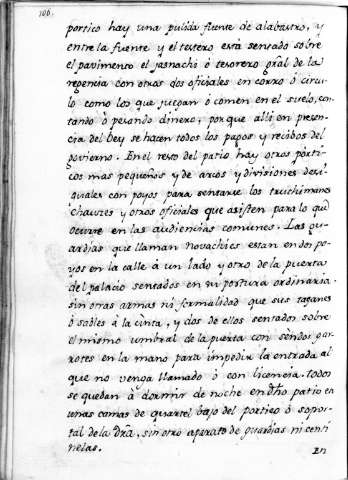 106.
portico hay una pulida fuente de alabastro, y
entre la fuente y el testero está sentado sobre
el pavimento el jasnachi ó tesorero gral de la
regencia con otros dos oficiales en corro ó circu-
lo como los que juegan ó comen en el suelo, con-
tando ó pesando dinero; por que alli en presen-
cia del Bey se hacen todos los pagos y recibos del
govierno. En el resto del patio hay otros porti-
cos mas pequeños y de arcos y divisiones desi-
guales con poyos para sentarse los truchimanes
chauzes y otros oficiales que asisten para lo que
ocurre en las audiencias comunes. Las gu-
ardias que llaman novachies estan en dos po-
yos en la calle à un lado y otro de la puerta
del palacio sentados en su postura ordinaria.
sin otras armas ni formalidad que sus taganes
ó sables à la cinta, y dos de ellos sentados sobre
el mismo umbral de la puerta con sendos gar-
rotes en la mano para impedir la entrada al
que no venga llamado ó con licencia. todos
se quedan à dormir de noche en dho patio en
unas camas de quartel bajo del portico ó sopor-
tal de la dra, sin otro aparato de guardias ni centi
nelas.
En